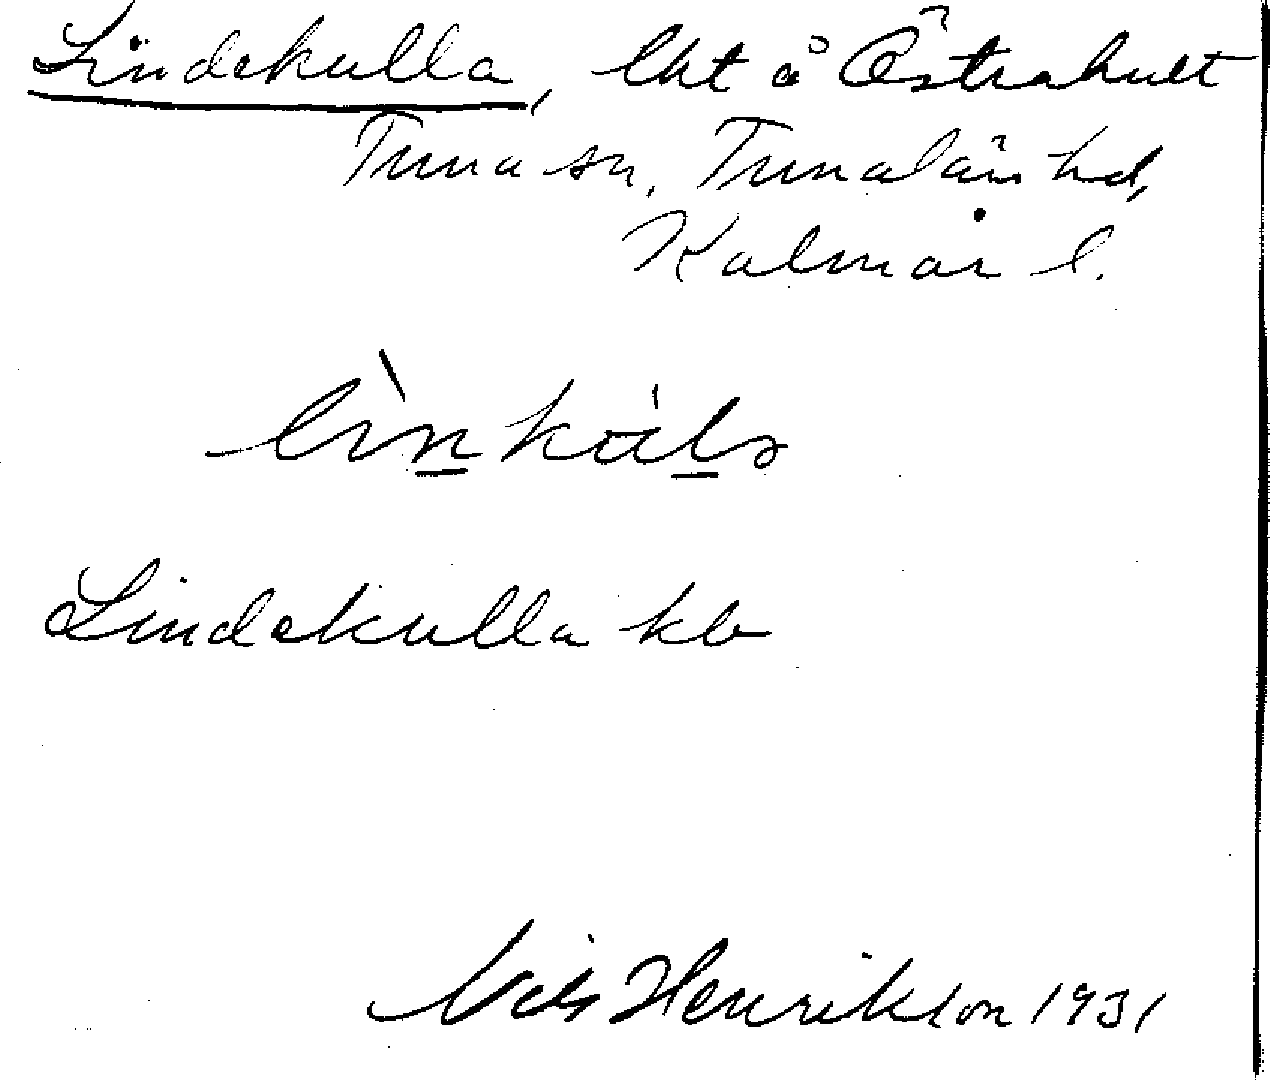 Lindekulla, lht å Östrahult
Tuna sn, Tunaläns hd,
Kalmar l.
Lindekulla kb
Nils Henrikson 1931